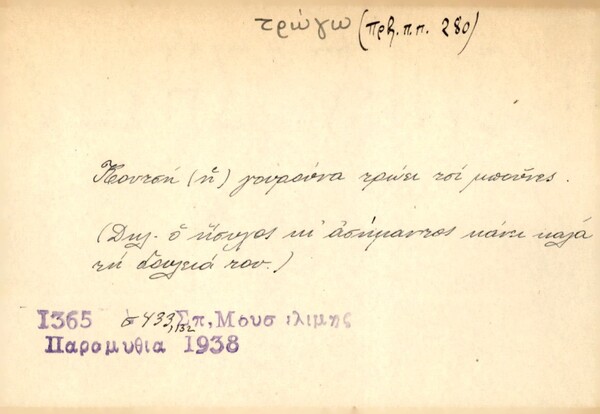 τρώγω (πρβ. π.π. 280)
Κουτσή (ἡ) γουρούνα τρώει τσί μποῦνες.
(Δηλ. ὁ ἥσυχος κι' ἀσήμαντος κάνει καλά
τή δουλειά του.)
1365 σ 433, 132 Σπ. Μουσελιμης
Παραμυθια 1938